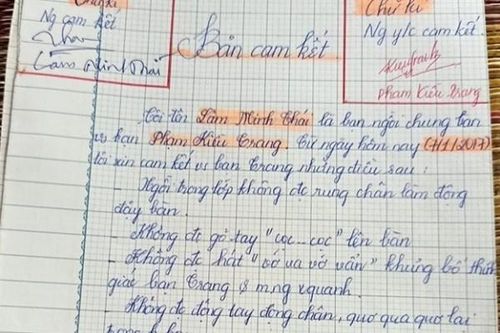 Chữ kí
Ng cam kết
Lâm Minh Thái
Bản cam kết
Chữ kí
Ng y/c cam kết
Phạm Kiều Trang
Tôi tên Lâm Minh Thái là bạn ngồi chung bàn
vs bạn Phạm Kiều Trang. Từ ngày hôm nay (7/1/2017)
tôi xin cam kết vs bạn Trang những điều sau:
- Ngồi trong lớp không đc rung chân làm động
dậy bàn.
- Không đc gõ tay "cọc...cọc" lên bàn
- Không đc hát "vớ va vớ vẩn" khủng bố thính
giác bạn Trang & m.ng xquanh.
- Không đc động tay động chân, quơ qua quơ lại